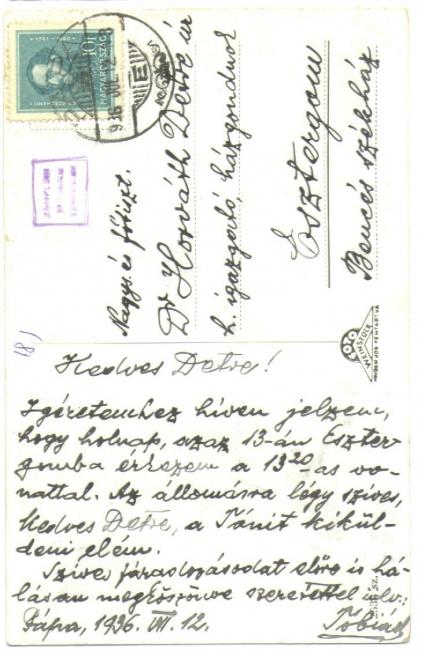 10f
MAGYARORSZÁG
Nagys. és főtiszt.
Dr Horváth Detre úr
h. igazgató, házgondnok
Esztergom
Bencés székház
FOTO
WEINSTOCK
MINDEN JOG FENTARTVA
Kedves Detre!
Igéretemhez híven jelzem,
hogy holnap, azaz 13-án Eszter-
gomba érkezem a 13²⁰-as vo-
nattal. Az állomásra légy szíves,
Kedves Detre, a Tónit kikül-
deni elém.
Szíves fáradozásodat előre is há-
lásan megköszönve szeretettel ölel:
Pápa, 1936. VII. 12. Tóbiás